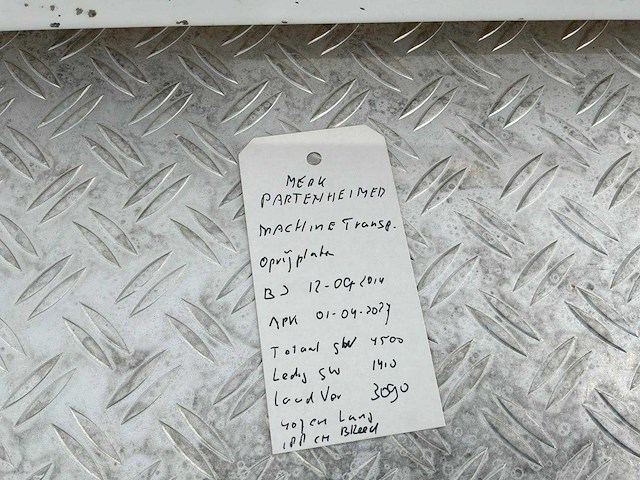 MERK
PARTENHEIMER
MACHINE Transp.
Oprijplaten
BJ 12-09-2014
APK 01-04-2027
Totaal gew 4500
Ledig gew 1410
Laad Ver 3090
407 cm Lang
cm Breed